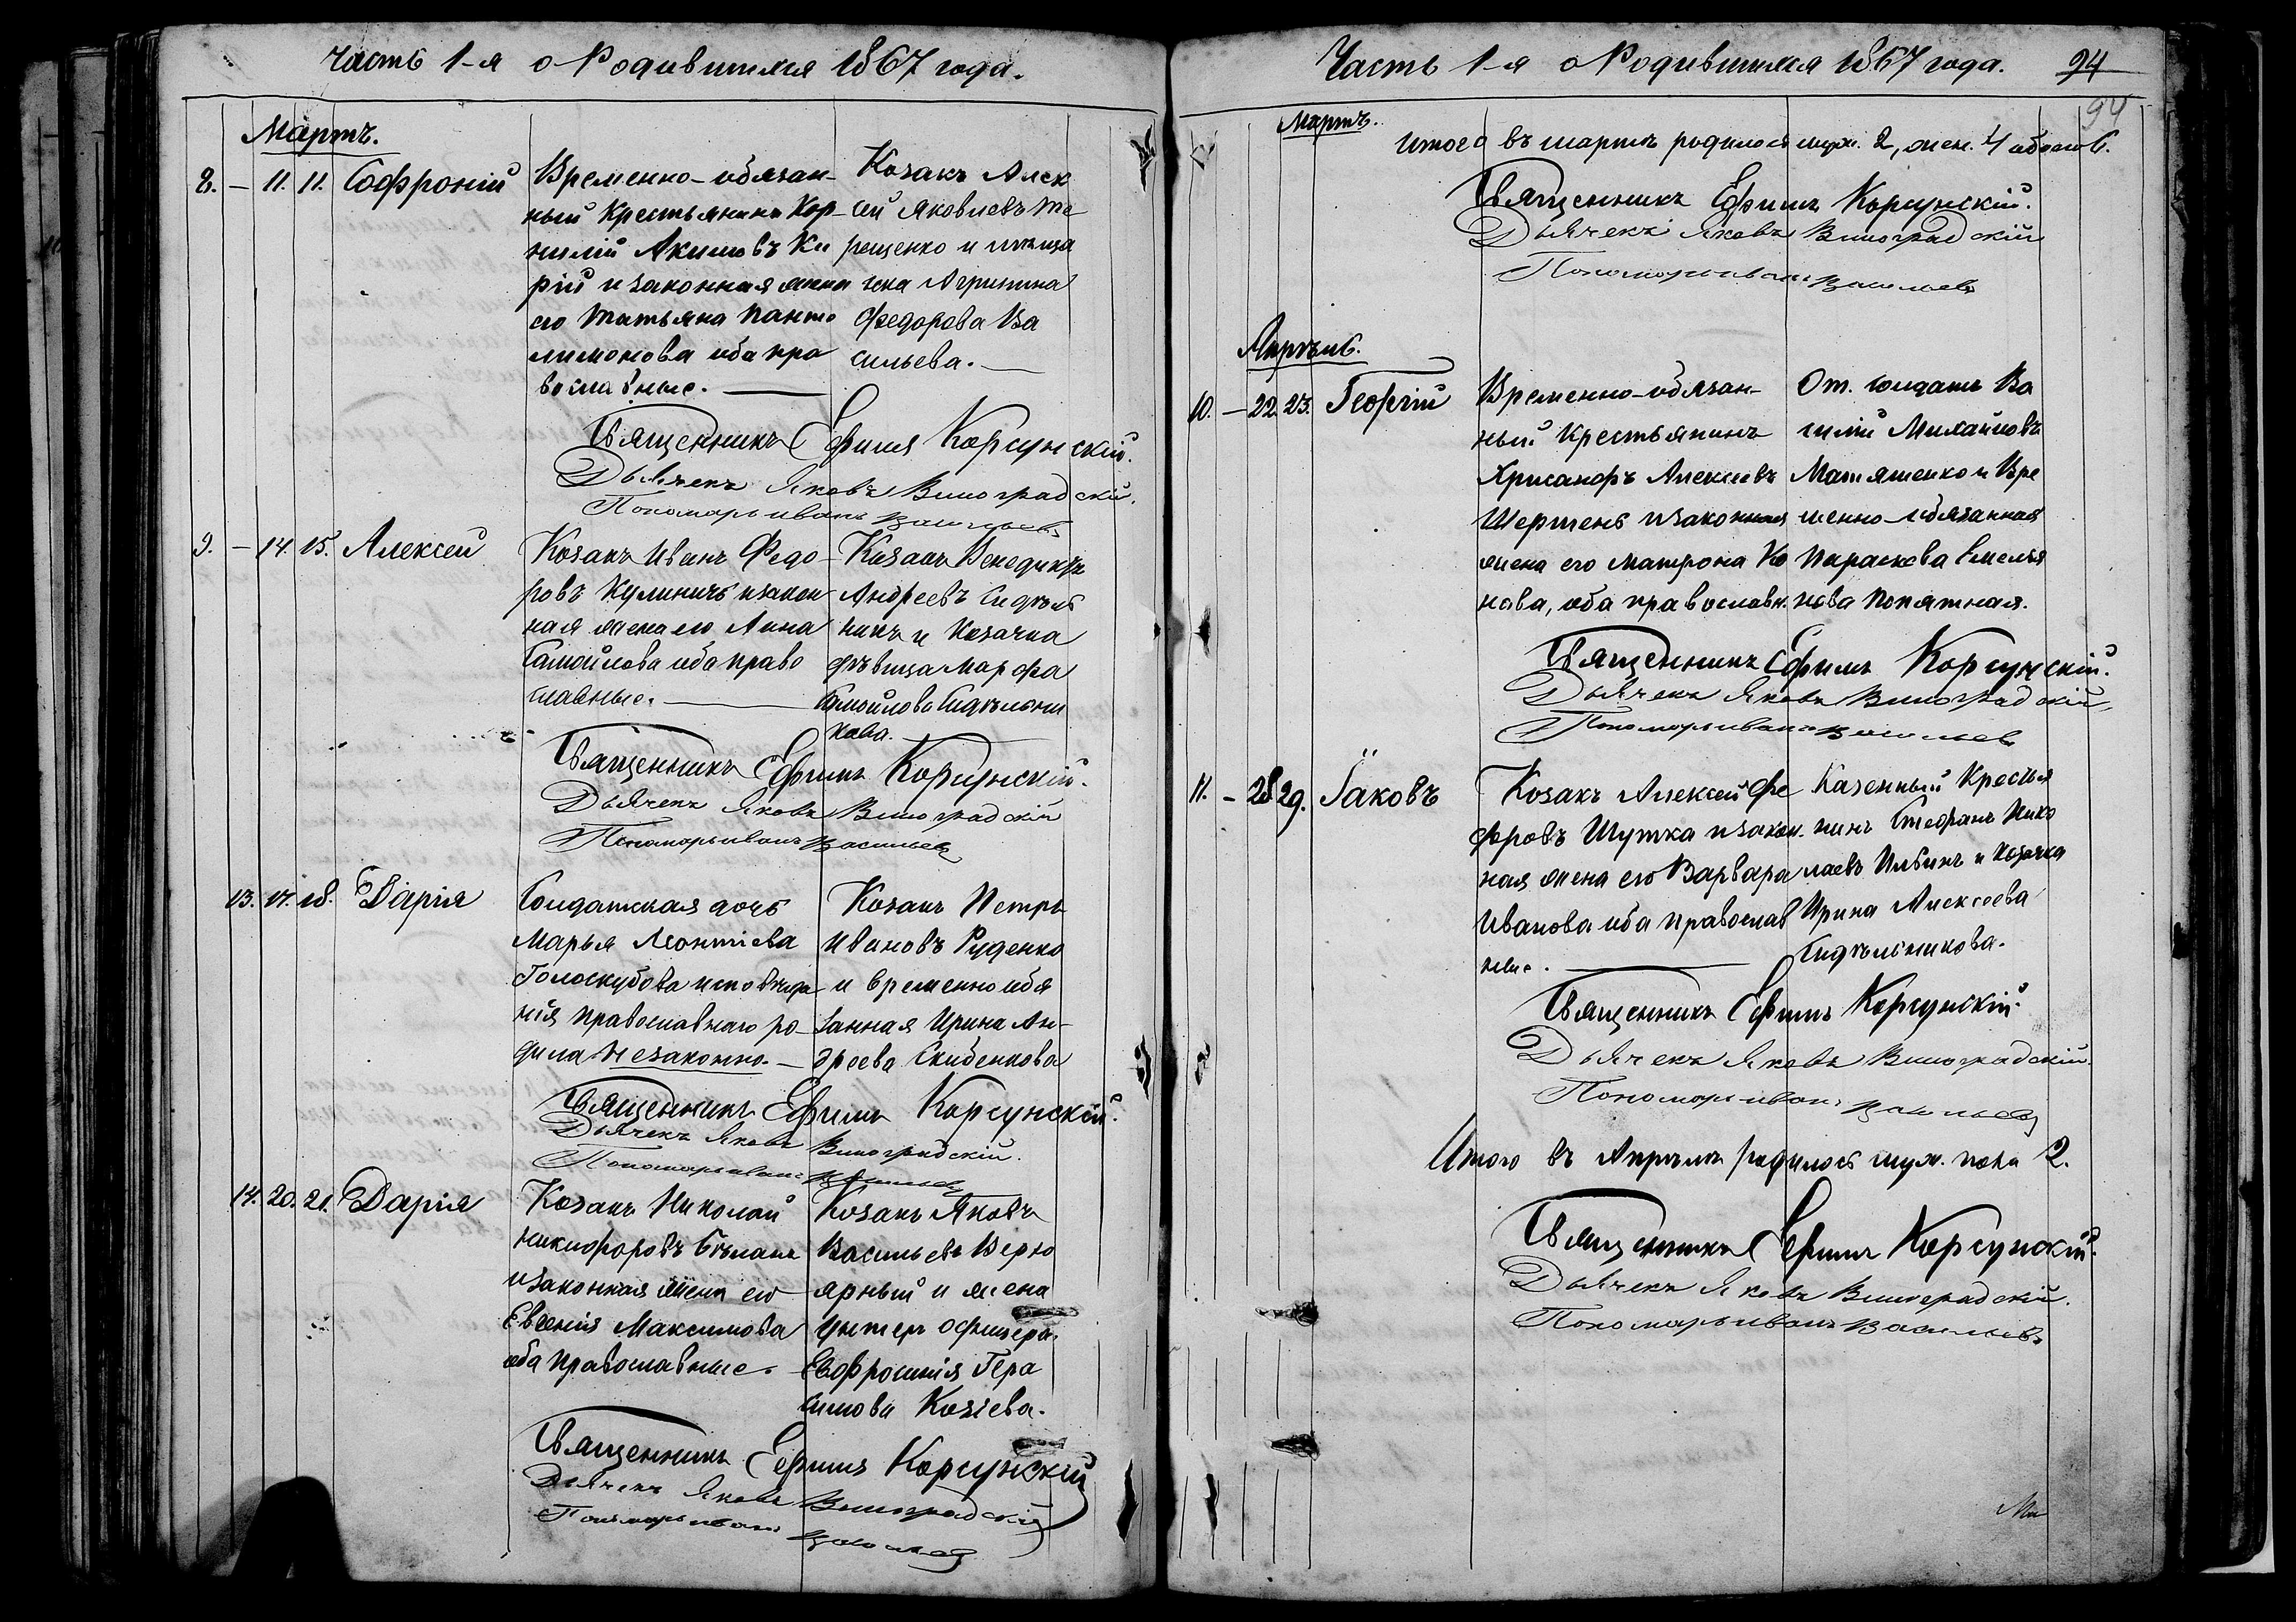 Часть 1-я о Родившихся 1867 года.
Мартъ.
8. – 11. 11. Софроній
Временно-обязан-
ный Крестьянинъ Кор-
нилій Акимовъ Ки
рій и законная жена
его Татьяна Панте
лимонова оба пра
вославные.
Козакъ Алек
сей Яковлевъ Те
рещенко и
Агрипина
Федорова Ва
сильева.
Священникъ Ефимъ Корсунскій.
Дьячекъ Яковъ Виноградскій.
Пономарь Иванъ Васильевъ
9. – 14. 15. Алексей
Козакъ Иванъ Федо-
ровъ Кулиничъ и закон
ная жена его Анна
Самойлова оба право
славные.
Козакъ Венедиктъ
Андреевъ Сидѣль
никъ и Козачка
дѣвица Марфа
Самойлова Сидѣльни
кова.
Священникъ Ефимъ Корсунскій.
Дьячекъ Яковъ Виноградскій
Пономарь Иванъ Васильевъ
13. 17. 18. Дарія
Солдатская дочь
Марья Леонтіева
Голоскубова исповѣда
нія православнаго ро-
дила незаконно.
Козакъ Петръ
Ивановъ Руденко
и временно обя
занная Ирина Ан-
дреева Скибенкова
Священникъ Ефимъ Корсунскій.
Дьячекъ Яковъ Виноградскій.
Пономарь Иванъ Васильевъ
14. 20. 21. Дарія
Козакъ Николай
Никифоровъ Бѣланъ
и законная жена его
Евгенія Максимова
оба православные.
Козакъ Яковъ
Васильевъ Верхо
ярный и жена
Унтеръ офицера
Евфросинія Гера
симова Козіева.
Священникъ Ефимъ Корсунскій
Дьячекъ Яковъ Виноградскій
Пономарь Иванъ Васильевъ
Часть 1-я о Родившихся 1867 года. 94
94
Мартъ.
Итого въ мартѣ родилося муж. 2, жен. 4 обоего 6.
Священникъ Ефимъ Корсунскій.
Дьячекъ Яковъ Виноградскій
Пономарь Иванъ Васильевъ
Апрѣль.
10. – 22. 23. Георгій
Временно-обязан-
ный Крестьянинъ
Хрисанфъ Алексеевъ
Шершень и законная
жена его Матрона Ко
нова, оба православн.
От. солдатъ Ва
силій Михайловъ
Матяшенко и Вре
менно-обязанная
Параскева Емелья
нова Попятная.
Священникъ Ефимъ Корсунскій.
Дьячекъ Яковъ Виноградскій,
Пономарь Иванъ Васильевъ
11. – 28 29. Іаковъ
Козакъ Алексей Фе
форовъ Шутка и закон.
ная жена его Варвара
Иванова оба православ
ные.
Казенный Крестья
нинъ Стефанъ Нико
лаевъ Ильинъ и Козачка
Ирина Алексеева
Сидѣльникова.
Священникъ Ефимъ Корсунскій
Дьячекъ Яковъ Виноградскій.
Пономарь Иванъ Васильевъ
Итого въ Апрѣлѣ родилось муж. пола 2.
Священникъ Ефимъ Корсунскій.
Дьячекъ Яковъ Виноградскій.
Пономарь Иванъ Васильевъ
Ма